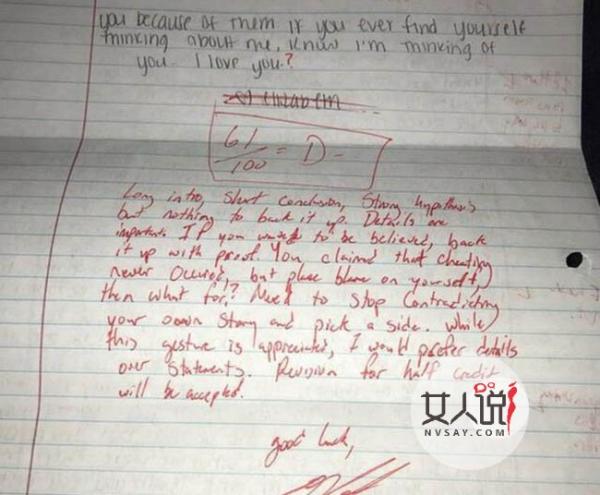 you because of them if you ever find yourself
thinking about me, know I'm thinking of
you. I love you.?
61
100 = D-
Long intro, short conclusion, Strong hypothesis
but nothing to back it up. Details are
important. If you want to be believed, back
it up with proof. You claimed that cheating
never occured, but place blame on yourself,
then what for!? Need to stop contradicting
your own story and pick a side. While
this gesture is appreciated, I would prefer details
over statements. Revision for half credit
will be accepted.
good luck,
女人说
NVSAY.COM